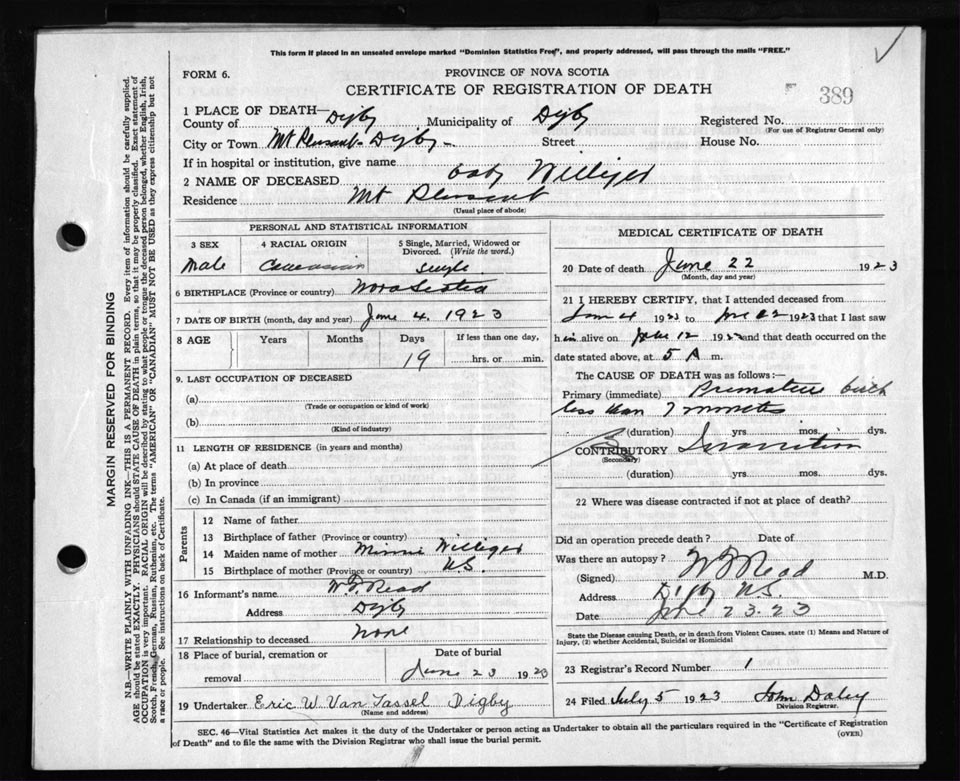 This form if placed in an unsealed envelope marked "Dominion Statistics Free", and properly addressed, will pass through the mails "FREE."
FORM 6.
PROVINCE OF NOVA SCOTIA
CERTIFICATE OF REGISTRATION OF DEATH
389
1 PLACE OF DEATH—
County of Digby Municipality of Digby Registered No.
(For use of Registrar General only)
City or Town Mt Pleasant - Digby - Street House No.
If in hospital or institution, give name
2 NAME OF DECEASED baby Williger
Residence Mt Pleasant
(Usual place of abode)
PERSONAL AND STATISTICAL INFORMATION
3 SEX 4 RACIAL ORIGIN 5 Single, Married, Widowed or Divorced. (Write the word.)
Male Caucasian Single
6 BIRTHPLACE (Province or country) Nova Scotia
7 DATE OF BIRTH (month, day and year) June 4. 1923
8 AGE Years Months Days If less than one day,
19 hrs. or min.
9. LAST OCCUPATION OF DECEASED
(a)
(Trade or occupation or kind of work)
(b)
(Kind of industry)
11 LENGTH OF RESIDENCE (in years and months)
(a) At place of death
(b) In province
(c) In Canada (if an immigrant)
Parents
12 Name of father
13 Birthplace of father (Province or country)
14 Maiden name of mother Minnie Williger
15 Birthplace of mother (Province or country) N.S.
16 Informant's name Read
Address Digby
17 Relationship to deceased None
18 Place of burial, cremation or removal
Date of burial
June 23 1923
19 Undertaker Eric W. Van Tassel Digby
(Name and address)
MEDICAL CERTIFICATE OF DEATH
20 Date of death June 22 1923
(Month, day and year)
21 I HEREBY CERTIFY, that I attended deceased from
June 4 1923 to June 22 1923 that I last saw
him alive on June 12 192 and that death occurred on
date stated above, at 5 A m.
The CAUSE OF DEATH was as follows:—
Primary (immediate) Premature birth
less than 7 months
(duration) yrs. mos. dys.
CONTRIBUTORY Inanition
(Secondary)
(duration) yrs. mos. dys.
22 Where was disease contracted if not at place of death?
Did an operation precede death? Date of
Was there an autopsy?
(Signed) Read M.D.
Address Digby N.S.
Date 23.23
State the Disease causing Death, or in death from Violent Causes, state (1) Means and Nature of
Injury, (2) whether Accidental, Suicidal or Homicidal
23 Registrar's Record Number 1
24 Filed July 5 1923 John Daley
Division Registrar.
SEC. 46—Vital Statistics Act makes it the duty of the Undertaker or person acting as Undertaker to obtain all the particulars required in the "Certificate of Registration
of Death" and to file the same with the Division Registrar who shall issue the burial permit.
(OVER)
MARGIN RESERVED FOR BINDING
N.B.—WRITE PLAINLY WITH UNFADING INK—THIS IS A PERMANENT RECORD. Every item of information should be carefully supplied.
AGE should be stated EXACTLY. PHYSICIANS should STATE CAUSE OF DEATH in plain terms, so that it may be properly classified. Exact statement of
OCCUPATION is very important. RACIAL ORIGIN will be described by stating to what people or tongue the deceased person belonged, whether English, Irish,
Scotch, French, German, Russian, Ruthenian, etc. The terms "AMERICAN" OR "CANADIAN" MUST NOT BE USED as they express citizenship but not
a race or people. See instructions on back of Certificate.